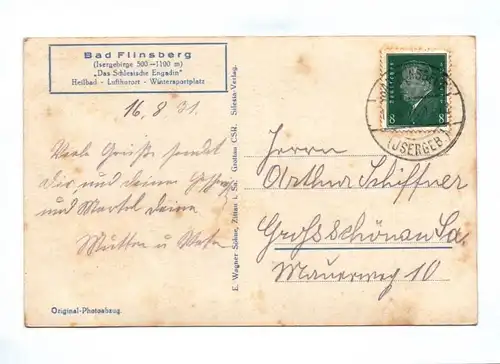 Bad Flinsberg
(Isergebirge 500—1100 m)
„Das Schlesische Engadin"
Heilbad - Luftkurort - Wintersportplatz
16. 8. 31.
Viele Grüße sendet
Dir und deinen
und deine
Mutter u
Original-Photoabzug.
E. Wagner Söhne, Zittau i. Sa. Grottau ČSR. Silesia-Verlag.
DEUTSCHES REICH
8 8
(ISERGEB.)
Herrn
Arthur Schiffner
Großschönau Sa.
Mauerweg 10